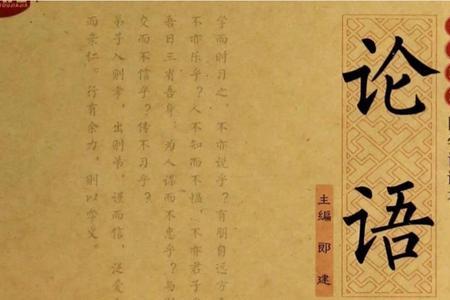 论语
主编 郎建
学而时习之，不亦说乎？有朋自远方
不亦乐乎？人不知而不愠，不亦君子
吾日三省吾身：为人谋而不忠乎？与
交而不信乎？传不习乎？
弟子入则孝，出则弟，谨而信，泛爱
而亲仁。行有余力，则以学文。